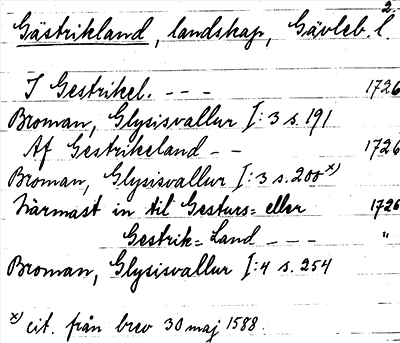 2.
Gästrikland, landskap, Gävleb. l.
I Gestrikel. - - - 1726
Broman, Glysisvallur I:3 s. 191
Af Gestrikeland - - 1726
Broman, Glysisvallur I:3 s. 200 x)
närmast in til Gesturs= eller 1726
Gestrik= Land - - - "
Broman, Glysisvallur I:4 s. 254
x) cit. från brev 30 maj 1588.